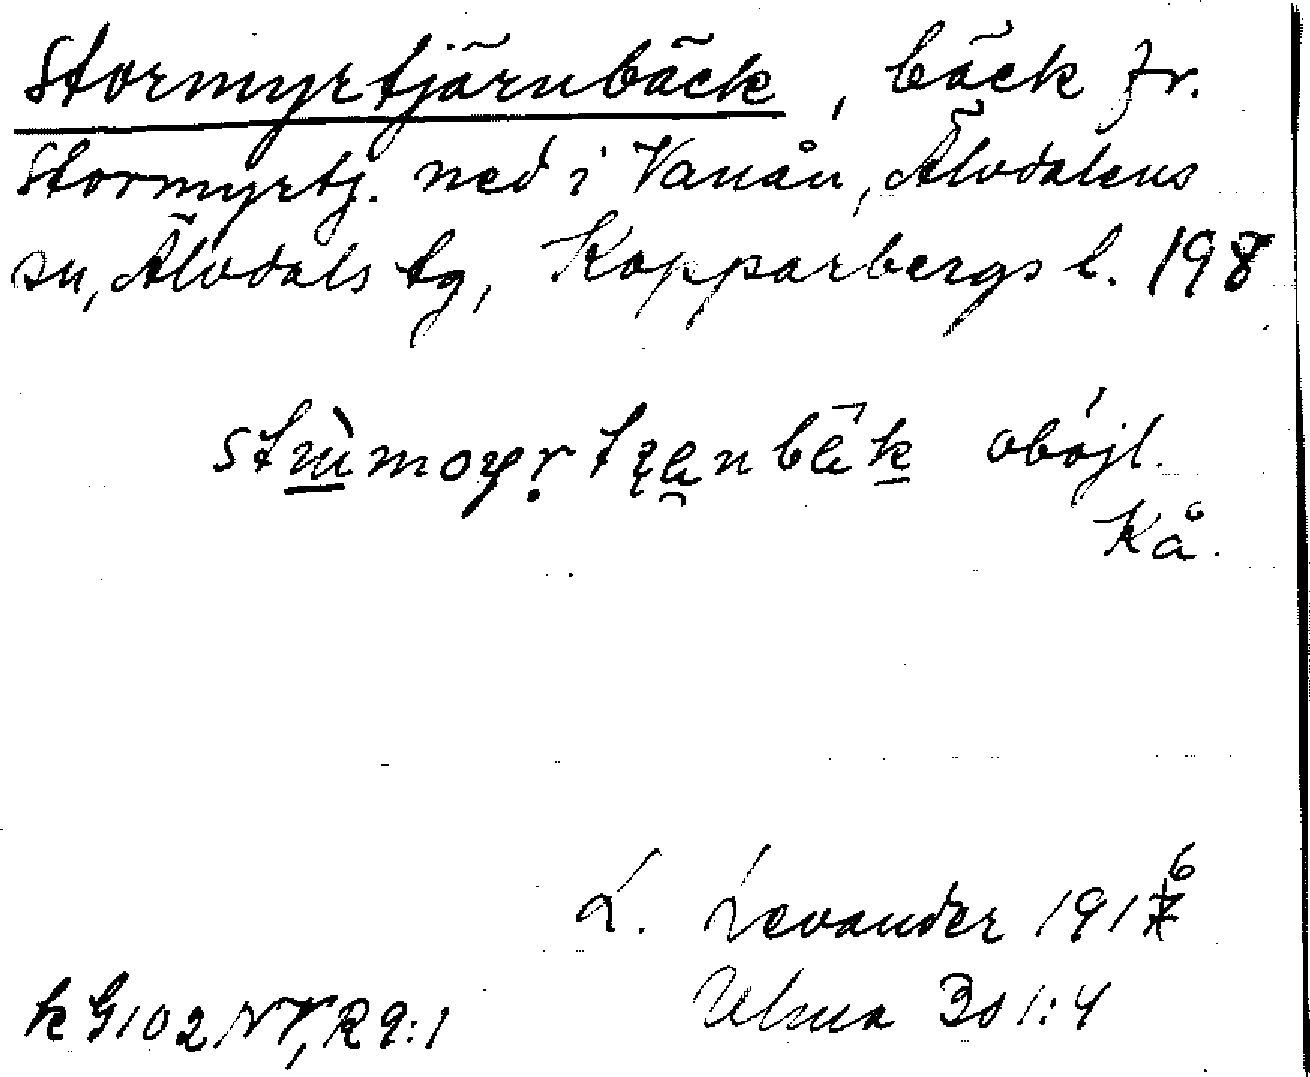 Stormyrtjärnbäck, bäck fr.
Stormyrtj. ned i Vanån, Älvdalens
sn, Älvdals tg, Kopparbergs l. 198
oböjl.
Kå.
L. Levander 1916
Ulma 301:4
k G102 NV, R9:1